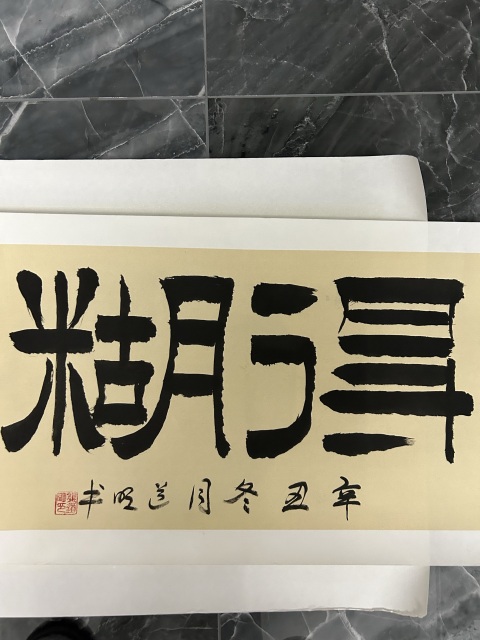 得糊
辛丑冬月道明书